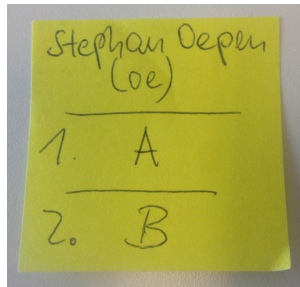 Stephan Oepen
(oe)
1. A
2. B